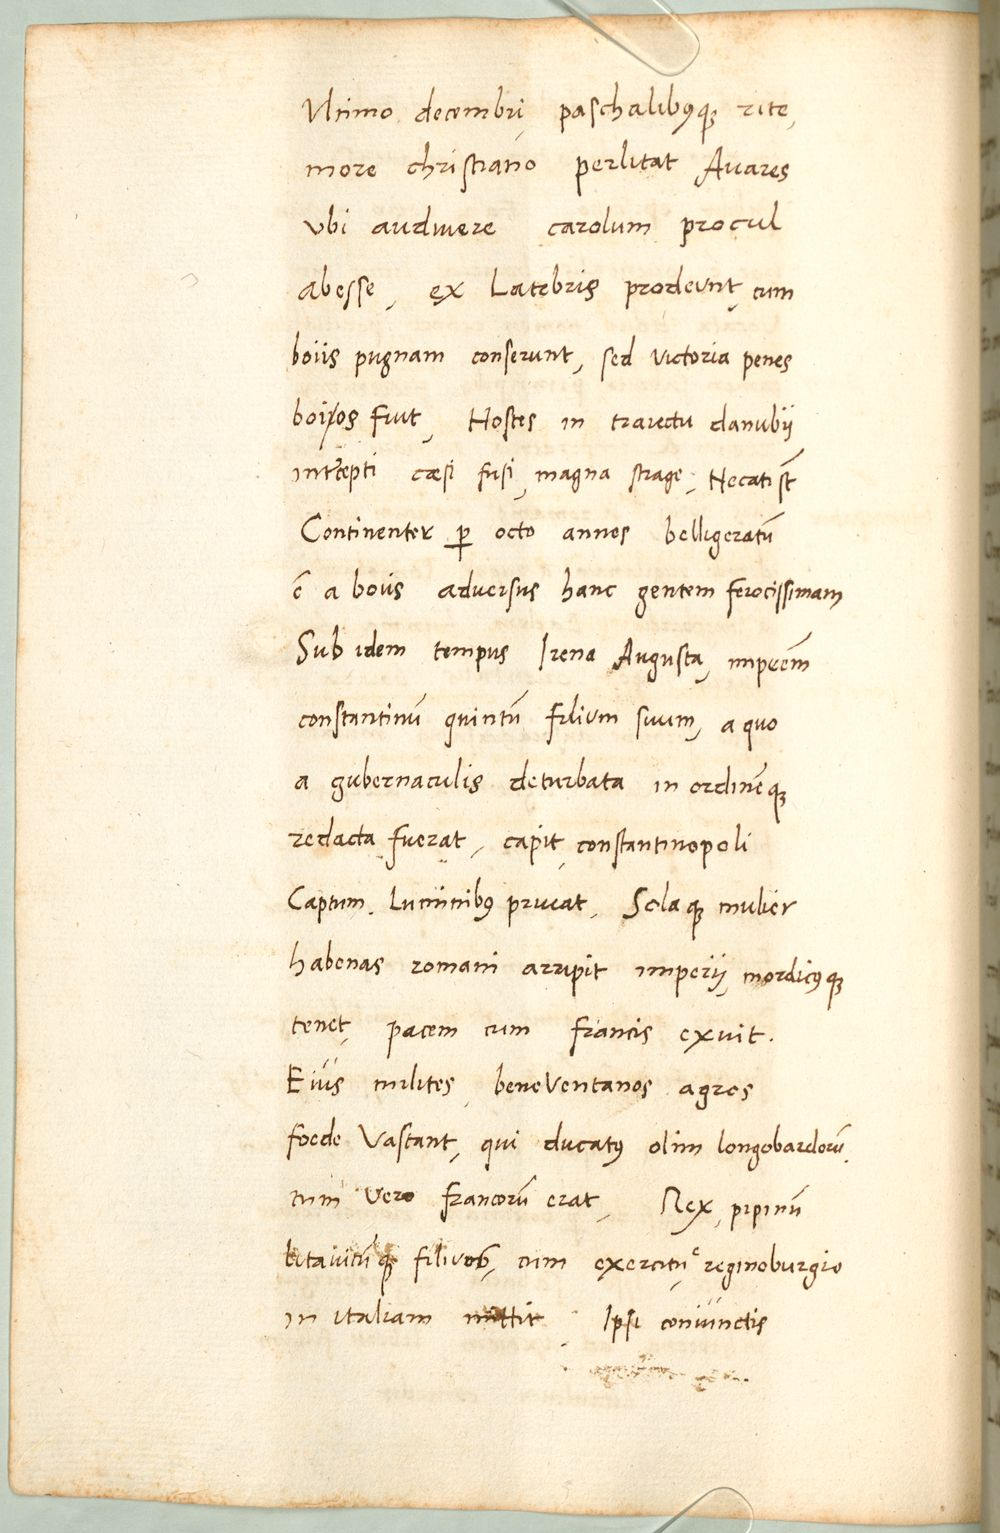 Vltimo decembri, paschalibꝰqꝫ rite,
more christiano perlitat Auares
vbi audiuere carolum procul
abesse, ex Latebris prodeunt, cum
boiis pugnam conserunt, sed victoria penes
boios fuit, Hostes in traiectu danubij
intercepti cæsi fusi, magna strage, Necati st̄
Continenter ꝑ octo annos belligeratū
ē a boiis aduersus hanc gentem ferocissimam
Sub idem tempus Irena Augusta, imperem̄
constantinū quintū filium suum, a quo
a gubernaculis deturbata in ordinēqꝫ
redacta fuerat, capit, constantinopoli
Captum. Luminibꝰ priuat, Solaqꝫ mulier
habenas romani arripit imperij, mordicꝰqꝫ
tenet, pacem cum francis exuit.
Eius milites, beneventanos agros
foede Vastant, qui ducatꝰ olim longobardorū,
tum vero francorū erat, Rex, pipinū
litaiucūqꝫ filiuos, cum exercitū, e reginoburgio
in italiam mittit, Ipsi coniunctis